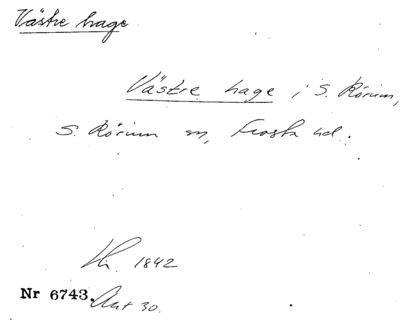 Västre hage
Västre hage i S. Rörum,
S. Rörum sn, Frosta hd.
Hi. 1842
Nr 6743. Akt 30.